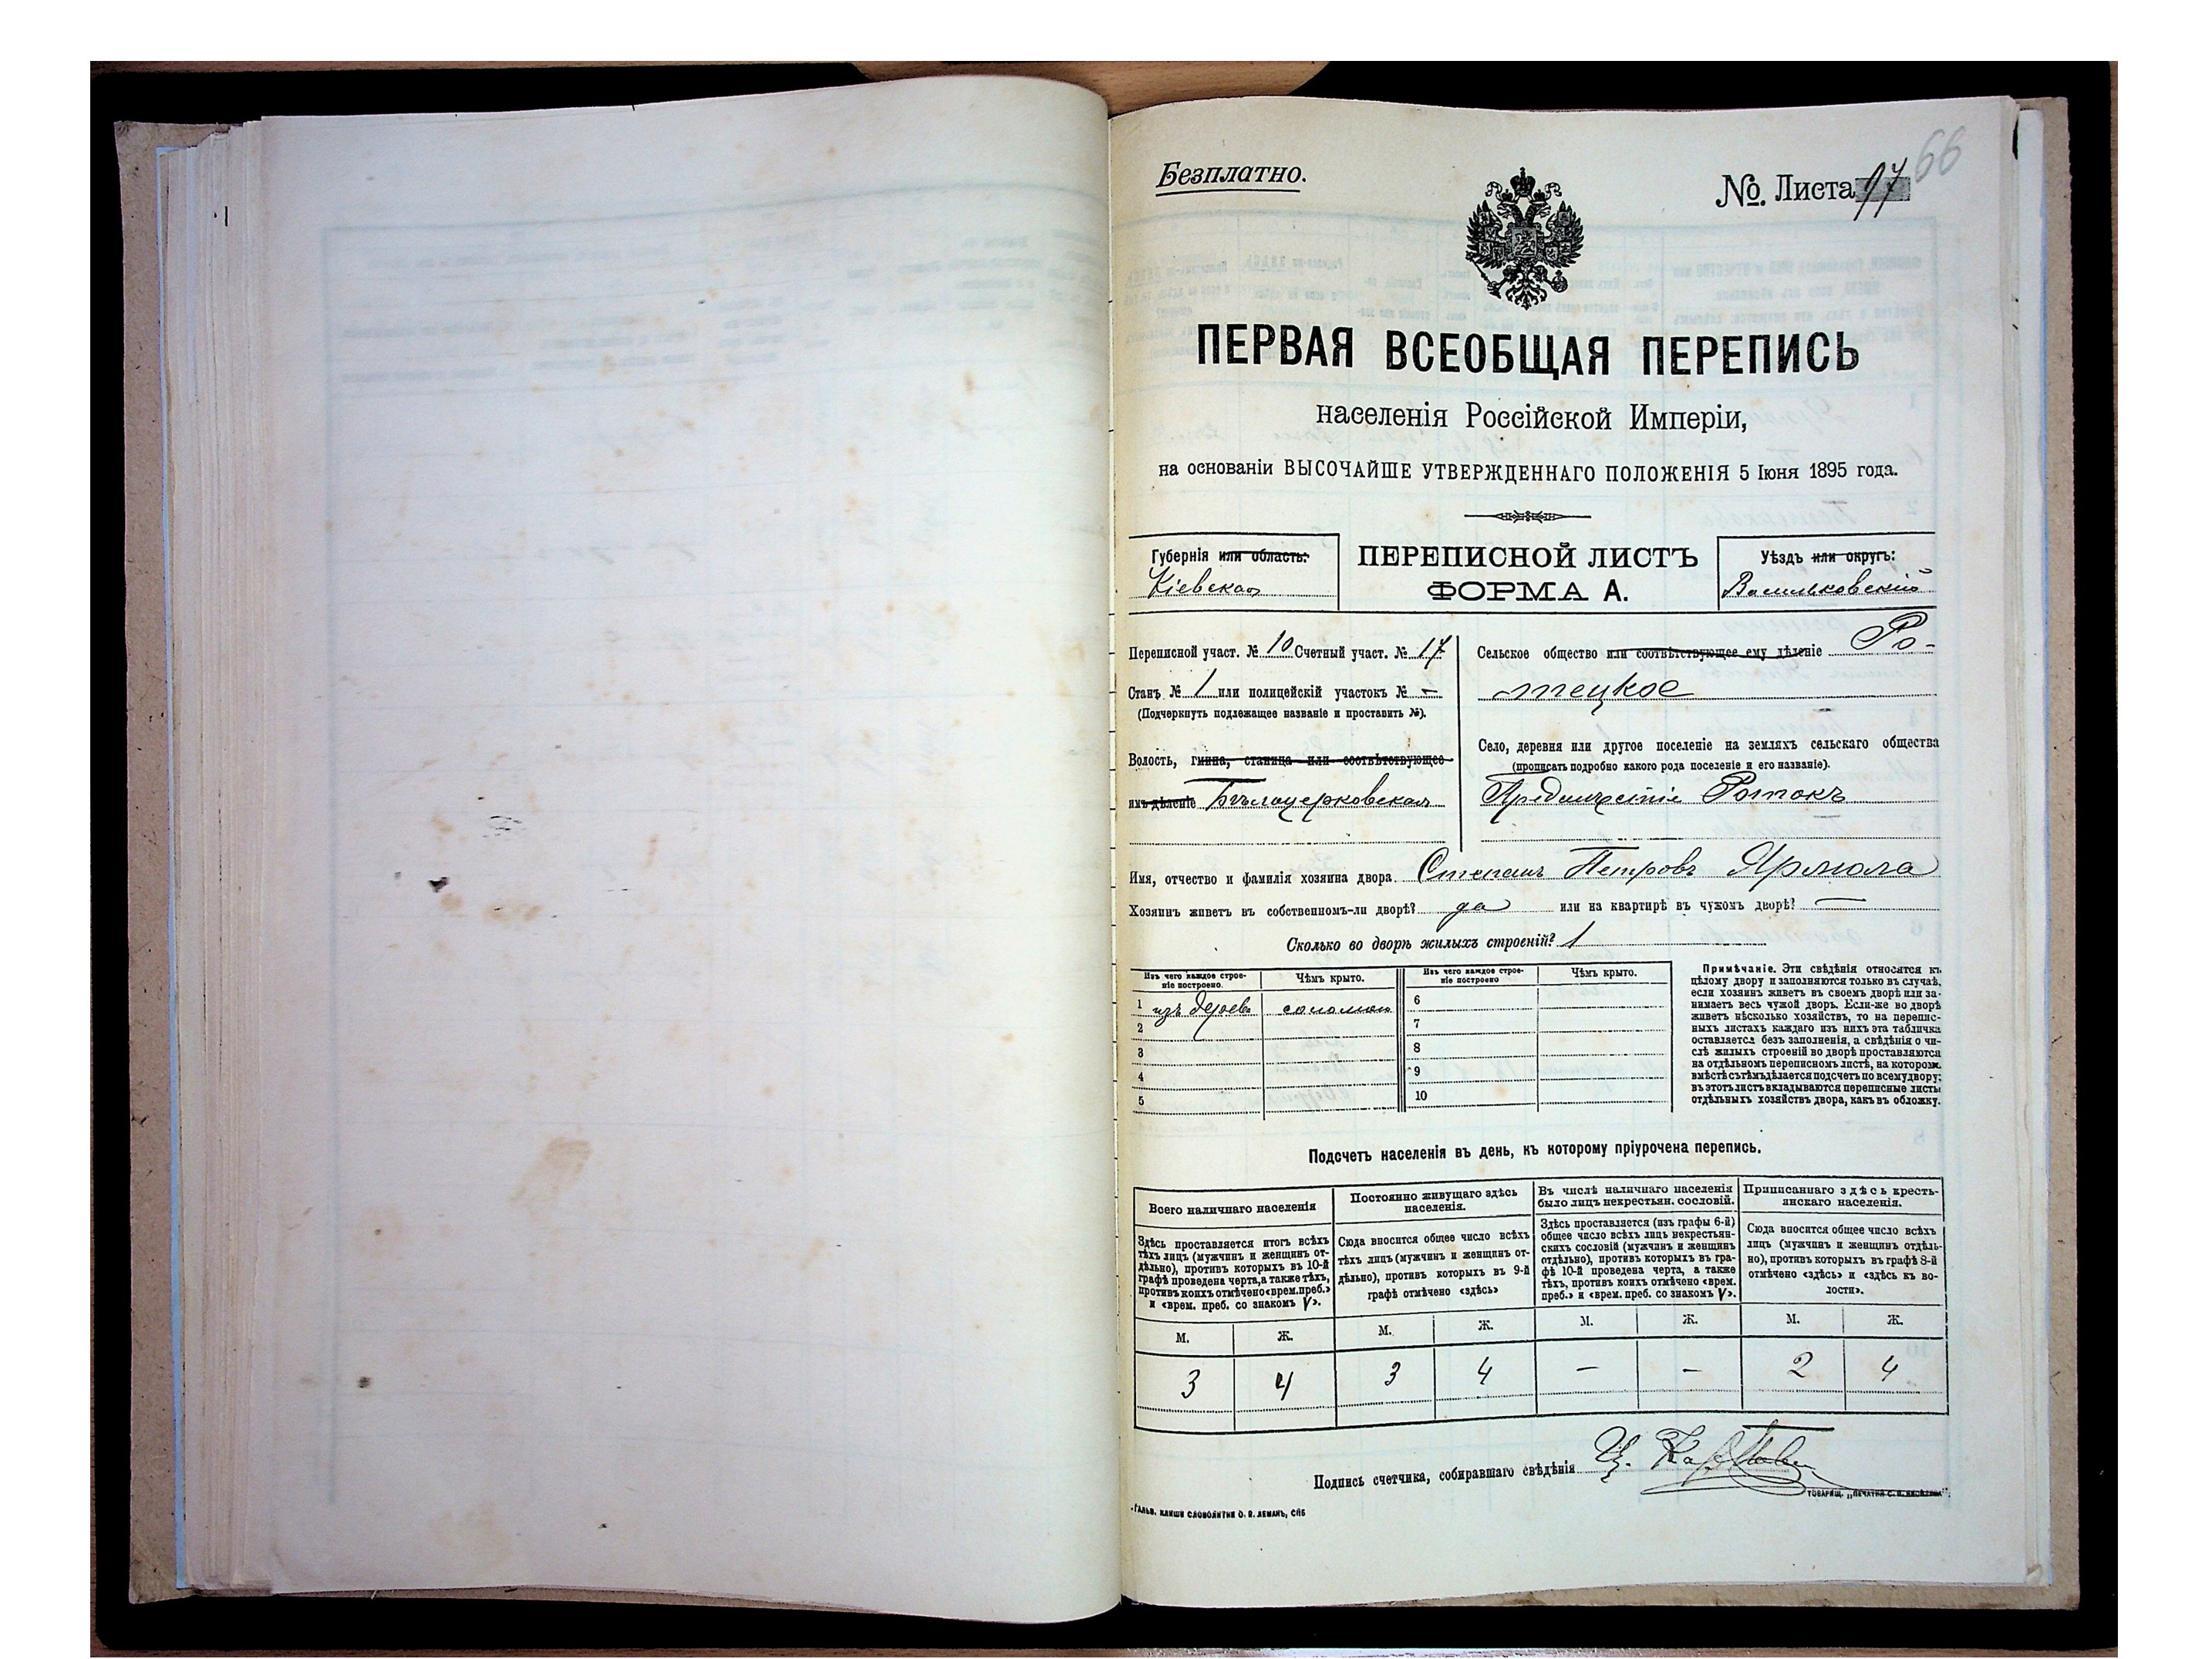 Безплатно.
№ Листа 17
66
ПЕРВАЯ ВСЕОБЩАЯ ПЕРЕПИСЬ
населенія Россійской Имперіи,
на основаніи ВЫСОЧАЙШЕ УТВЕРЖДЕННАГО ПОЛОЖЕНІЯ 5 Іюня 1895 года.
Губернія или область:
Кіевская
ПЕРЕПИСНОЙ ЛИСТЪ
ФОРМА А.
Уѣздъ или округъ:
Васильковскій
Переписной участ. № 10 Счетный участ. № 17
Станъ № 1 или полицейскій участокъ № —
(Подчеркнуть подлежащее названіе и проставить №).
Волость, гмина, станица или соотвѣтствующее
имъ дѣленіе Бѣлоцерковская
Сельское общество или соотвѣтствующее ему дѣленіе Ро-
тецкое
Село, деревня или другое поселеніе на земляхъ сельскаго общества
(прописать подробно какого рода поселеніе и его названіе).
Предмѣстіе Ротокъ
Имя, отчество и фамилія хозяина двора Степанъ Петровъ Ярмола
Хозяинъ живетъ въ собственномъ-ли дворѣ? да или на квартирѣ въ чужомъ дворѣ? —
Сколько во дворѣ жилыхъ строеній? 1
Изъ чего каждое строе-
ніе построено.
Чѣмъ крыто.
Изъ чего каждое строе-
ніе построено
Чѣмъ крыто.
1 изъ дерев. соломою
2
3
4
5
6
7
8
9
10
Примѣчаніе. Эти свѣдѣнія относятся къ
цѣлому двору и заполняются только въ случаѣ,
если хозяинъ живетъ въ своемъ дворѣ или за-
нимаетъ весь чужой дворъ. Если-же во дворѣ
живетъ нѣсколько хозяйствъ, то на перепис-
ныхъ листахъ каждаго изъ нихъ эта табличка
оставляется безъ заполненія, а свѣдѣнія о чи-
слѣ жилыхъ строеній во дворѣ проставляются
на отдѣльномъ переписномъ листѣ, на которомъ
вмѣстѣ съ тѣмъ дѣлается подсчетъ по всему двору;
въ этотъ листъ вкладываются переписные листы
отдѣльныхъ хозяйствъ двора, какъ въ обложку.
Подсчетъ населенія въ день, къ которому пріурочена перепись.
Всего наличнаго населенія
Здѣсь проставляется итогъ всѣхъ
тѣхъ лицъ (мужчинъ и женщинъ от-
дѣльно), противъ которыхъ въ 10-й
графѣ проведена черта, а также тѣхъ,
противъ коихъ отмѣчено «врем. преб.»
и «врем. преб. со знакомъ V».
Постоянно живущаго здѣсь
населенія.
Сюда вносится общее число всѣхъ
тѣхъ лицъ (мужчинъ и женщинъ от-
дѣльно), противъ которыхъ въ 9-й
графѣ отмѣчено «здѣсь»
Въ числѣ наличнаго населенія
было лицъ некрестьян. сословій.
Здѣсь проставляется (изъ графы 6-й)
общее число всѣхъ лицъ некрестьян-
скихъ сословій (мужчинъ и женщинъ
отдѣльно), противъ которыхъ въ гра-
фѣ 10-й проведена черта, а также
тѣхъ, противъ коихъ отмѣчено «врем.
преб.» и «врем. преб. со знакомъ V».
Приписаннаго здѣсь кресть-
янскаго населенія.
Сюда вносится общее число всѣхъ
лицъ (мужчинъ и женщинъ отдѣль-
но), противъ которыхъ въ графѣ 8-й
отмѣчено «здѣсь» и «здѣсь къ во-
лости».
М. Ж. М. Ж. М. Ж. М. Ж.
3 4 3 4 — — 2 4
Подпись счетчика, собиравшаго свѣдѣнія
Гальв. клише словолитни О. И. Леманъ, СПБ